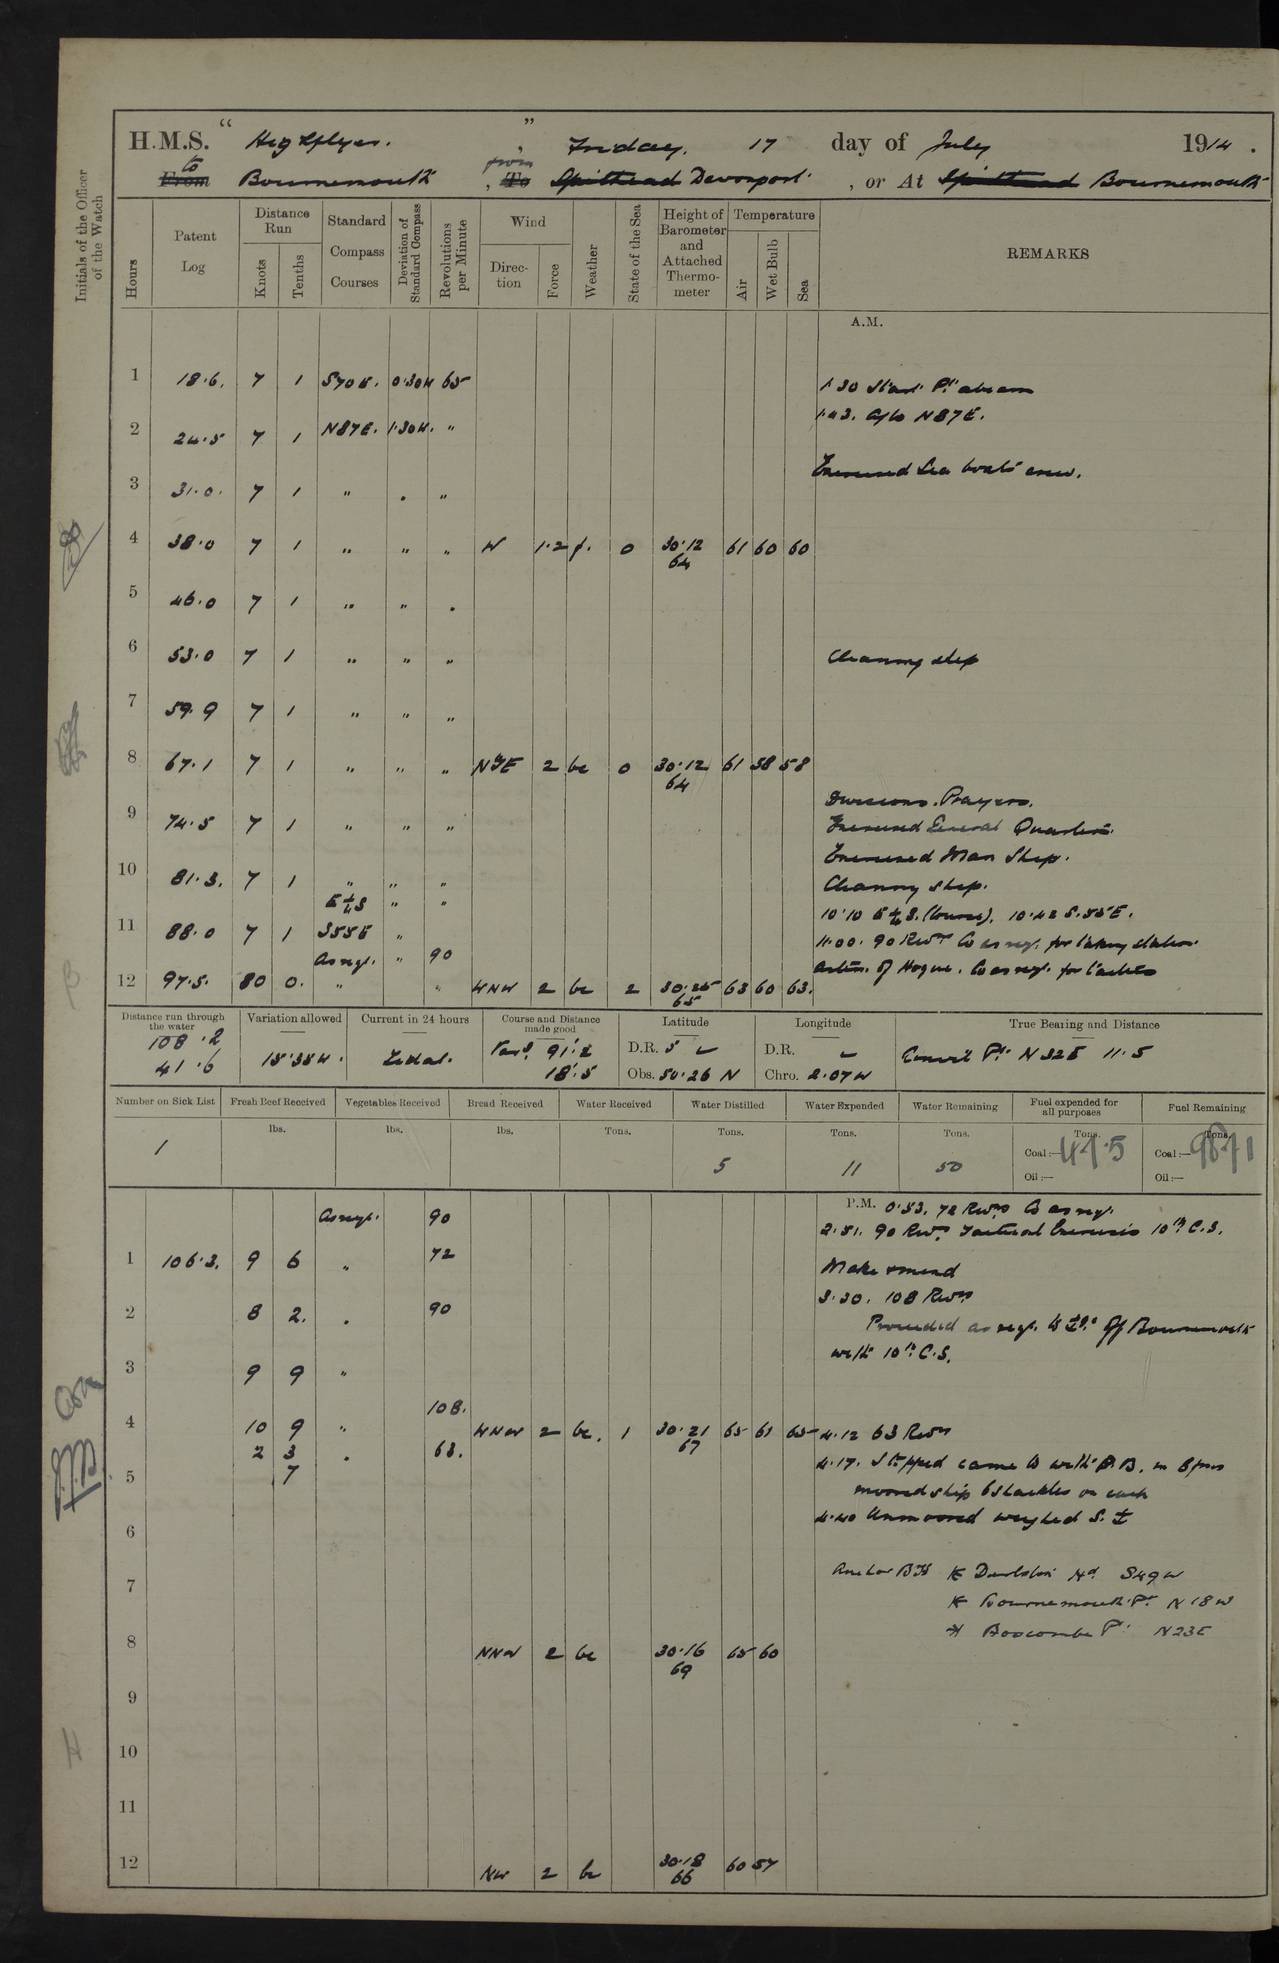 H.M.S. " Highflyer. " , Friday. 17 day of July 1914.
From to Bournemouth , To from Spithead Devonport , or At Spithead Bournemouth
Initials of the Officer of the Watch
Hours
Patent Log
Distance Run
Knots
Tenths
Standard Compass Courses
Deviation of Standard Compass
Revolutions per Minute
Wind
Direction
Force
Weather
State of the Sea
Height of Barometer and Attached Thermometer
Temperature
Air
Wet Bulb
Sea
REMARKS
A.M.
1 18.6. 7 1 S70E. 0.30W 65
1.30 Start Pt abeam
1.43. a/co N87E.
2 24.5 7 1 N87E. 1.30W. "
Exercised Sea boats crew.
3 31.0. 7 1 " " "
4 38.0 7 1 " " " W 1.2 f. 0 30.12 64 61 60 60
5 46.0 7 1 " " "
6 53.0 7 1 " " "
Cleaning ship
7 59.9 7 1 " " "
8 67.1 7 1 " " " NYE 2 bc 0 30.12 64 61 58 58
Divisions. Prayers.
9 74.5 7 1 " " "
Exercised General Quarters.
Exercised Man Ship.
10 81.3. 7 1 " " "
Cleaning ship.
E¼S " "
10.10 E¼S. (Course). 10.42 S.55E.
11 88.0 7 1 S55E "
11.00. 90 Revs Co as req. for taking station
As req. " 90
astn. of Hogue. Co as req. for tactics
12 97.5. 80 0. " " WNW 2 bc 2 30.25 65 63 60 63.
Distance run through the water
108.2
41.6
Variation allowed
15.35W.
Current in 24 hours
Tidal.
Course and Distance made good
Vars. 91.2
18.5
Latitude
D.R. 5
Obs. 50.26 N
Longitude
D.R.
Chro. 2.07W
True Bearing and Distance
N 32E 11.5
Number on Sick List
1
Fresh Beef Received
lbs.
Vegetables Received
lbs.
Bread Received
lbs.
Water Received
Tons.
Water Distilled
Tons.
5
Water Expended
Tons.
11
Water Remaining
Tons.
50
Fuel expended for all purposes
Tons.
Coal:— 47.5
Oil:—
Fuel Remaining
Tons.
Coal:— 9871
Oil:—
P.M. 0.53. 72 Revs Co as req.
As req. 90
2.51. 90 Revs Tactical Exercises 10th C.S.
1 106.3. 9 6 " 72
Make & mend
3.30. 108 Revs
2 8 2. " 90
Proceeded as req. to ⚓ge off Bournemouth
with 10th C.S.
3 9 9 "
108.
4 10 9 " WNW 2 bc. 1 30.21 67 65 61 65
4.12 63 Revs
2 3 " 63.
4.17. Stopped came to with P.B. in 8 fms
5 7
moored ship 6 shackles on each
4.40 Unmoored weighed S. ⚓
6
7
Anchor Bgs Durlston Hd. S49W
Bournemouth Pr N18W
8 NNW 2 bc 30.16 69 65 60
Boscombe Pr N23E
9
10
11
12 NW 2 bc 30.18 66 60 57